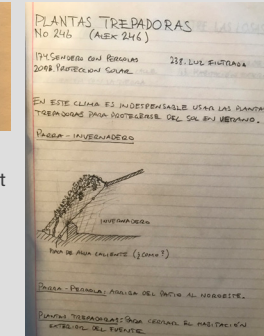 PLANTAS TREPADORAS
No 246 (ALEX 246)
174. SENDERO CON PERGOLAS 238. LUZ FILTRADA
209B. PROTECCION SOLAR
EN ESTE CLIMA ES INDISPENSABLE USAR LAS PLANTAS
TREPADORAS PARA PROTEGERSE DEL SOL EN VERANO.
PARRA - INVERNADERO
INVERNADERO
DE AGUA CALIENTE (¿COMO?)
PARRA - PERGOLA: ARRIBA DEL PATIO AL NOROESTE.
PLANTAS TREPADORAS: PARA CERRAR EL HABITACIÓN
EXTERIOR DEL FUENTE
t